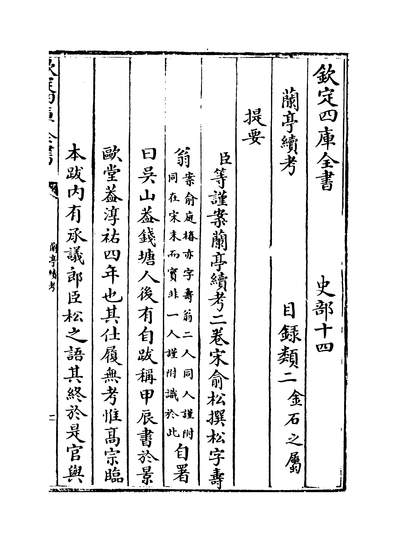 欽定四庫全書 史部十四
蘭亭續考 目録類二金石之屬
提要
臣等謹案蘭亭續考二卷宋俞松撰松字壽
翁案俞庭椿亦字壽翁二人同人謹附同在宋末而實非一人謹附識於此自署
曰吳山葢錢塘人後有自跋稱甲辰書於景
歐堂葢淳祐四年也其仕履無考惟髙宗臨
本跋内有承議郎臣松之語其終於是官與
蘭亭續考